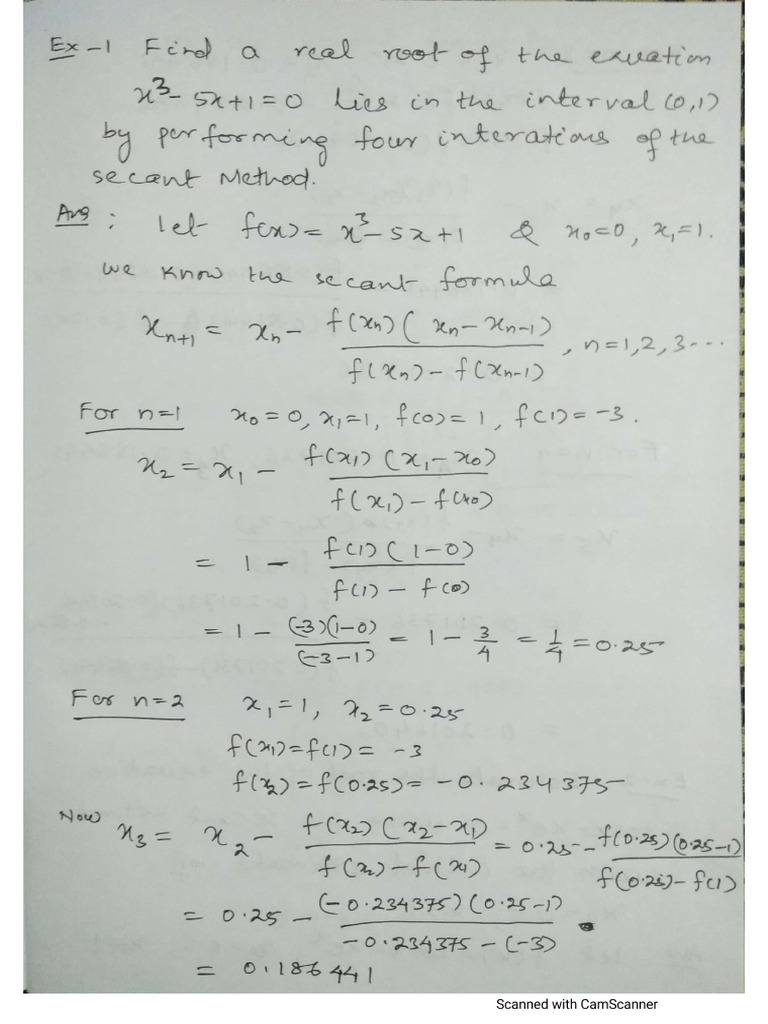 Ex-1 Find a real root of the equation
x³- 5x+1=0 lies in the interval (0,1)
by performing four interations of the
secant Method.
Ans: let f(x)= x³-5x+1 & x₀=0, x₁=1.
we know the secant formula
xₙ₊₁ = xₙ - f(xₙ)( xₙ-xₙ₋₁) / f(xₙ)- f(xₙ₋₁) , n=1,2,3...
For n=1 x₀=0, x₁=1, f(0)=1, f(1)=-3.
x₂ = x₁ - f(x₁)(x₁-x₀) / f(x₁)-f(x₀)
= 1 - f(1)(1-0) / f(1)-f(0)
= 1 - (-3)(1-0) / (-3-1) = 1 - 3/4 = 1/4 = 0.25
For n=2 x₁=1, x₂=0.25
f(x₁)=f(1)= -3
f(x₂)=f(0.25)= -0.234375
Now x₃= x₂ - f(x₂)(x₂-x₁) / f(x₂)-f(x₁) = 0.25 - f(0.25)(0.25-1) / f(0.25)-f(1)
= 0.25 - (-0.234375)(0.25-1) / -0.234375-(-3) .
= 0.186441
Scanned with CamScanner